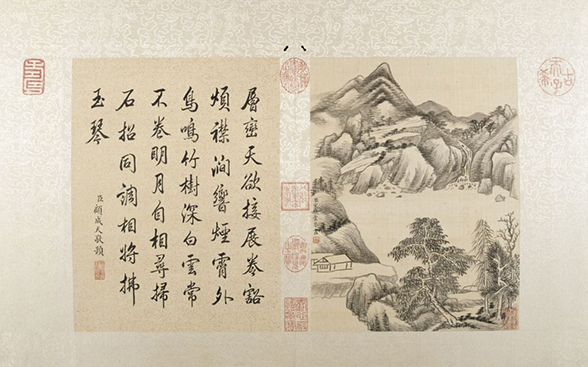 層巒天欲接展卷豁
煩襟澗響煙霄外
鳥鳴竹樹深白雲常
不卷明月自相尋掃
石招同調相將拂
玉琴
臣顧成天敬題
古希天子